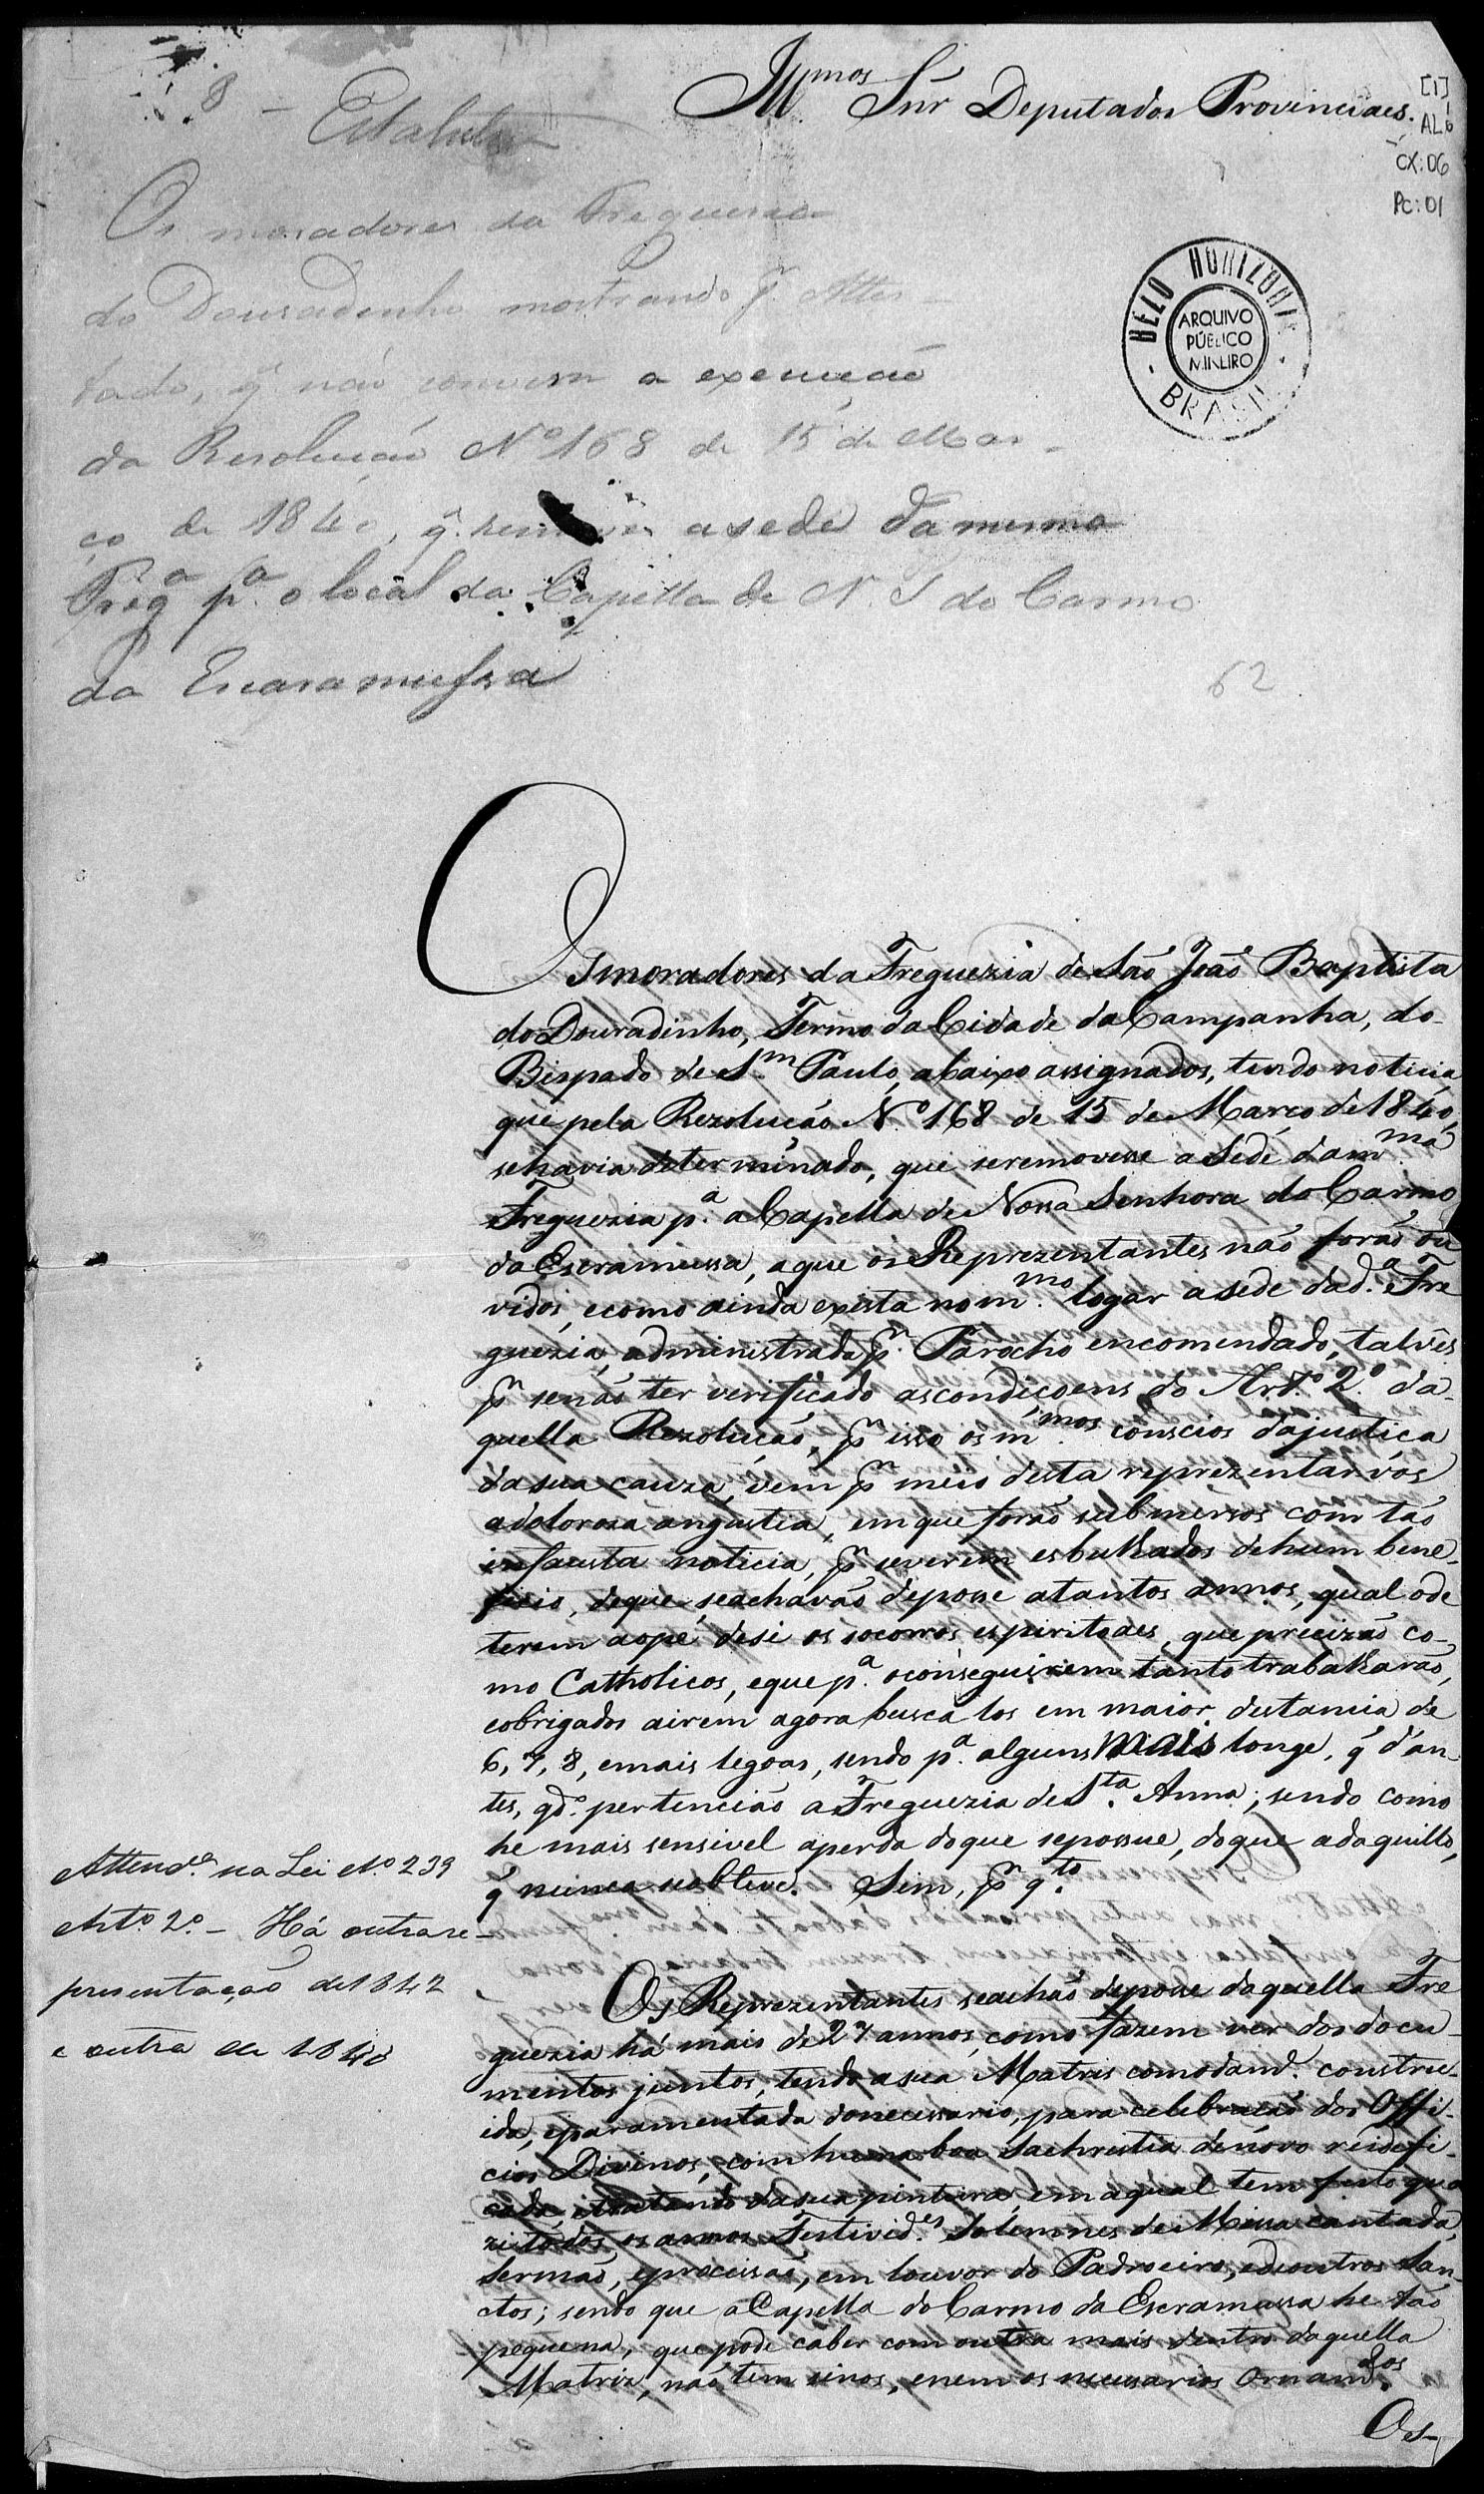 Illmos Snr Deputados Provinciaes.
[1]
AL
CX:06
Pc:01
8 -
Os moradores da Freguesia
do Douradinho mostrando pr. Attes-
tado, q̃ não convem a execução
da Resolução Nº 168 de 15 de Mar-
ço de 1840, q̃. remove a sede da mesma
Frega pa. o local da Capella de N. S do Carmo
da Escaramussa
BELO HORIZONTE
ARQUIVO
PÚBLICO
MINEIRO
BRASIL
62
Os moradores da Freguezia de São João Baptista
do Douradinho, Termo da Cidade da Campanha, do
Bispado de Sm Paulo, abaixo assignados, tendo noticia,
que pela Rezolucão Nº 168 de 15 de Março de 1840,
sehavia determinado, que seremovesse a Séde dam.ma
Freguezia p.a a Capella de Nossa Senhora do Carmo
da Escramussa, a que os Reprezentantes não forão ou
vidos, ecomo ainda exista nom.mo logar a sede dad.a Fre
guezia, administrada pr. Parocho encomendado, talvês
pr senão ter verificado ascondiçoens do Art.º 2.º da-
quella Rezolução, pr isso os m.mos conscios dajustiça
dasua cauza, vem pr meio desta reprezentar vos
adolorosa angustia, emque forão submersos com tão
infausta noticia, pr severem esbulhados dehum bene-
ficio, deque seachavão deposse atantos annos, qual ode
terem aopé desi os socorros espiritoaes, que precizão co-
mo Catholicos, eque p.a oconseguirem tanto trabalharão,
eobrigados airem agora busca los em maior distancia de
6, 7, 8, emais legoas, sendo p.a alguns mais longe, q̃ d'an
tes, qdº. pertencião a Freguezia de S.ta Anna; sendo como
he mais sensivel aperda doque sepossue, doque adaquillo,
q̃ nunca seobteve. Sim, pr q.to
Attend.º na Lei Nº 239
Artº 2º - Há outra re-
presentação de 1842
e outra de 1840
Os Reprezentantes seachão deposse daquella Fre
guezia há mais de 27 annos, como fazem ver dos docu-
mentos juntos, tendo a sua Matris comodamd. constru-
ida, eparamentada donecessario, para celebração dos Offi-
cios Divinos, com huma boa Sachrestia denovo reidefi-
cada, etratando dasua pintura, em aqual tem feito qua
zi todos os annos Festivid.es Solemnes de Missa cantada,
Sermão, eprocissão, em louvor do Padroeiro, edeoutros San
ctos; sendo que a Capella do Carmo da Escramussa he tão
pequena, que pode caber com outra mais dentro daquella
Matriz, não tem sinos, enem os necessarios Ornamtos.
Os-